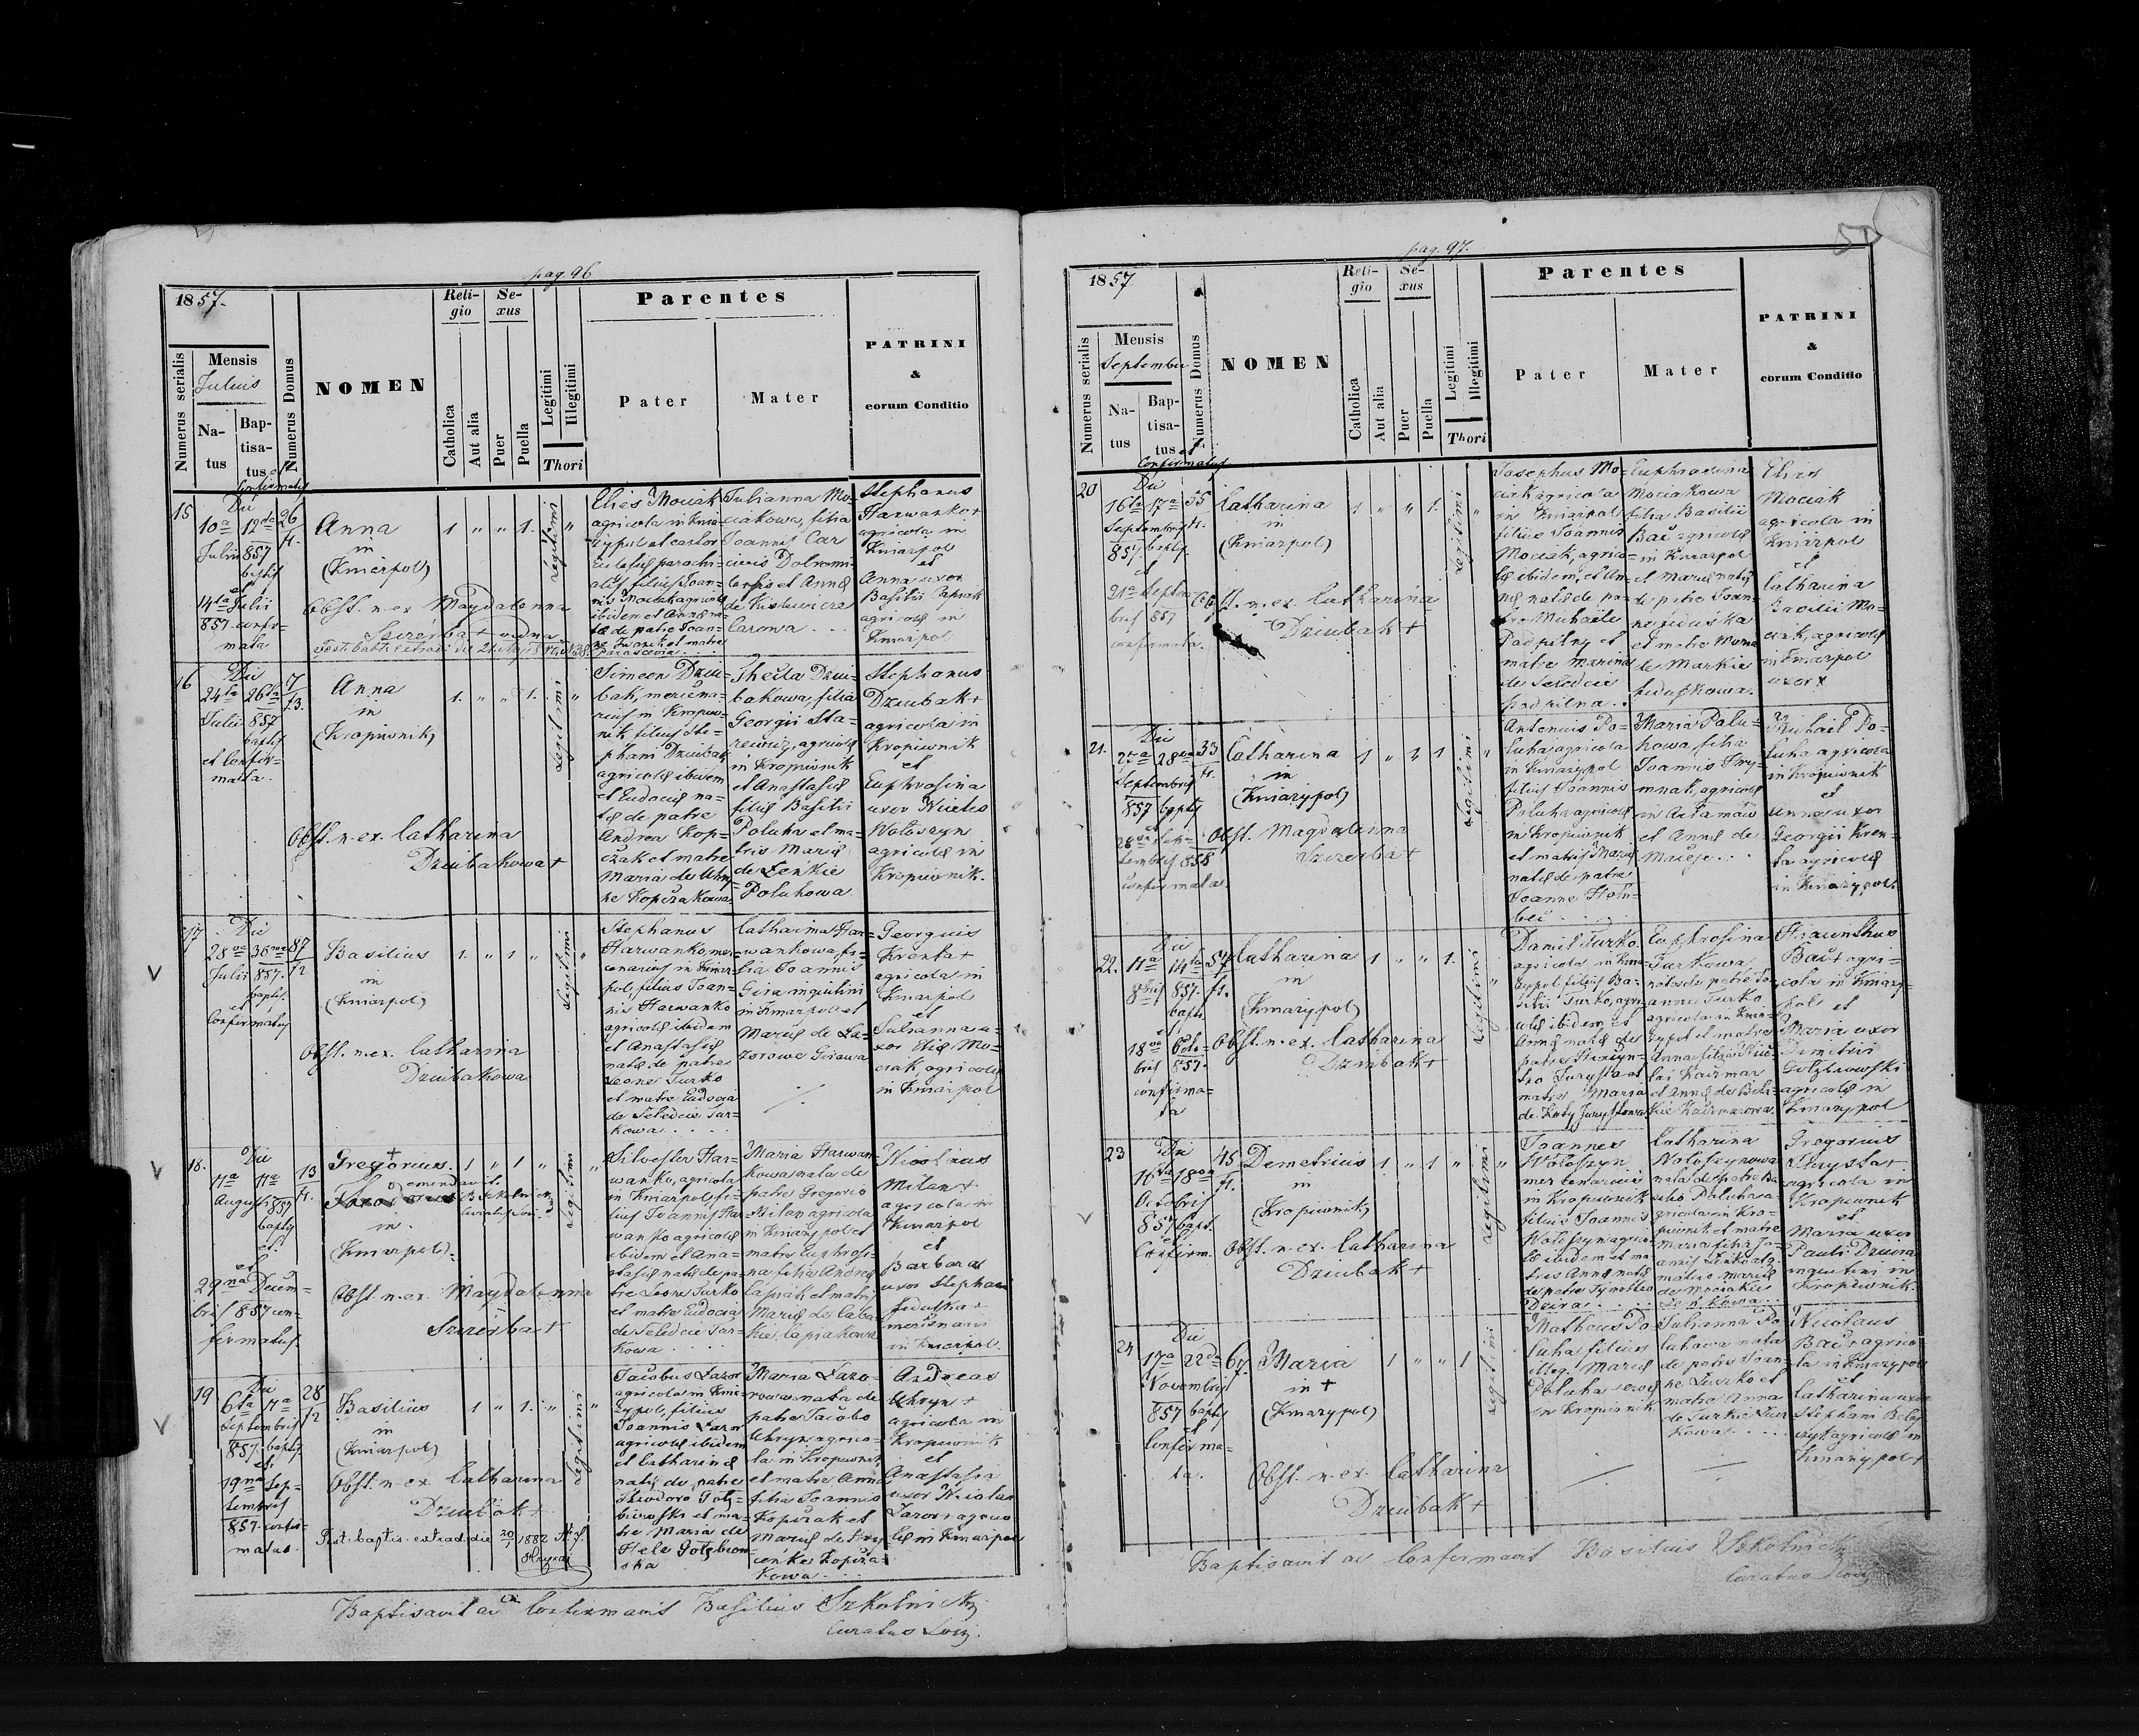 pag. 96
1857.
Numerus serialis
Mensis
Julius
Natus
Baptisatus et Confirmatus
Numerus Domus
NOMEN
Religio
Catholica
Aut alia
Sexus
Puer
Puella
Legitimi
Illegitimi
Thori
Parentes
Pater
Mater
PATRINI
&
eorum Conditio
15
Die
10a 12da 26
Julii 857
baptis
et
14ta Julii
857 confir=
mata
Anna
in
(Kniazpol)
Obst. n. ex. Magdalenna
Szczerba + vidua
1 " " 1. legitimi "
Elies Mociak
agricola in Knia=
zypol et cantor
Ecclesiæ parochi=
alis filius Joan=
nis Mociak agricolæ
ibidem et Annæ na=
tæ de patre Joan=
ne et matre
Parascevia
Julianna Mo=
ciakowa, filia
Joannis Car
civis Dobromi=
lensis et Annæ
de Kisilewicz
Carowa . . .
Stephanus
Harwanko +
agricola in
Kniazpol
et
Anna uxor
Basilii Capiak
agricolæ in
Kniazpol
16
Die
24ta 26ta 17
Julii 857 f3.
baptis
et Confir=
mata.
Anna
in
(Kropiwnik)
Obst. n. ex. Catharina
Dziubakowa +
1. " " 1. legitimi "
Simeon Dziu=
bak, mercena=
rius in Kropiw=
nik filius Ste=
phani Dziubak
agricolæ ibidem
et Eudociæ na=
tæ de patre
Andrea Kop=
czak et matre
Maria de Uhry=
ne Kopczakowa
Thecla Dziu=
bakowa, filia
Georgii Sta=
rewicz, agricolæ
in Kropiwnik
et Anastasiæ
filiæ Basilii
Poluha et ma=
tris Mariæ
de Leńkie
Poluhowa
Stephanus
Dziubak +
agricola in
Kropiwnik
et
Euphrosina
uxor Nicetes
Wołoszyn
agricolæ in
Kropiwnik.
17
Die
28va 30ma 87
Julii 857. f2
baptis.
et
Confirmatus
Basilius
in
(Kniazpol)
Obst. n. ex. Catharina
Dziubakowa
1. " 1 " legitimi "
Stephanus
Harwanko, mer=
cenarius in Kniaz=
pol, filius Joan=
nis Harwanko
agricolæ ibidem
et Anastasiæ
natæ de patre
Leone Turko
et matre Eudocia
de Seledcie Tur=
kowa . . . .
Catharina Har=
wankowa fi=
lia Joannis
Gira inquilini
in Kniazpol et
Mariæ de La=
zorowe Girawa
Georgius
Krenta +
agricola in
Kniazpol
et
Julianna u=
xor Eliæ Mo=
ciak, agricolæ
in Kniazpol
18.
Die
11a 11a 13
Augusti 857 f1.
baptis
et
29na Decem=
bris 857 con=
firmatus.
Gregorius. +
emendavit
B. Szkolnicki
Curatus Loci.
in.
(Kniazpol)
Obst. n. ex. Magdalenna
Szczerba +
1 " 1 " legitimi "
Silvester Har=
wanko, agricola
in Kniazpol, fi=
lius Joannis Har=
wanko agricolæ
ibidem et Ana=
stasiæ natæ de pa=
tre Leone Turko
et matre Eudocia
de Seledcie Tur=
kowa . . . .
Maria Harwan=
kowa nata de
patre Gregorio
Milan agricola
in Kniazypol et
matre Euphrosi=
na filia Andreæ
Capiak et matris
Mariæ de Caba=
kie Capiakowa
Nicolaus
Milan +
agricola in
Kniazpol
et
Barbara
uxor Stephani
Feduśka +
mercenarii
in Kniazpol.
19
Die
6ta 7ma 28
Septembris f2
857. baptis
et
19na Sep=
tembris
857 confir=
matus.
Basilius
in
(Kniazpol)
Obst. n. ex Catharina
Dziubak +
Test. baptis. extrad. die 20/1 1882
1 " 1. " legitimi "
Jacobus Łazor
agricola in Knia=
zypol, filius
Joannis Łazor
agricolæ ibidem
et Catharinæ
natæ de patre
Theodoro Gołę=
biowski et ma=
tre Maria de
Hele Gołębiow=
ska
Maria Łazo=
rowa nata de
patre Jacobo
Uhryn agrico=
la in Kropiwnik
et matre Anna
filia Joannis
Kopczak et
Mariæ de Hry=
cenkie Kopcza=
kowa . . .
Andreas
Uhryn +
agricola in
Kropiwnik
et
Anastasia
uxor Nicolai
Łazor + agrico=
læ in Kniazpol
Baptisavit ac Confirmavit Basilius Szkolnicki
Curatus Loci.
pag. 97.
1857
Numerus serialis
Mensis
September
Natus
Baptisatus et Confirmatus
Numerus Domus
NOMEN
Religio
Catholica
Aut alia
Sexus
Puer
Puella
Legitimi
Illegitimi
Thori
Parentes
Pater
Mater
PATRINI
&
eorum Conditio
20
Die
16ta 17a 55
Septembris f1.
857 baptis
et
21a Septem=
bris 857
confirmata.
Catharina
in
(Kniazpol)
O. n. ex. Catharina
Dziubak +
1 " " 1. legitimi "
Josephus Mo=
ciak agricola
in Kniazpol
filius Joannis
Mociak, agrico=
læ ibidem, et An=
næ natæ de pa=
tre Michaële
Padpilny et
matre Marina
de Seledcie
Padpilna . .
Euphrosina
Mociakowa
filia Basilii
Bać agricolæ
in Kniazpol
et Mariæ natæ
de patre Joan=
ne Feduśka
et matre Maria
de Markie
Feduśkowa.
Elias
Mociak
agricola in
Kniazpol
et
Catharina
Basilii Mo=
ciak, agricolæ
in Kniazpol
uxor +
21.
Die
27a 28va 33
Septembris f1.
857 baptis
et
28va Sep=
tembris 858
confirmata.
Catharina
in
(Kniazypol)
Obst. Magdalenna
Szczerba +
1 " " 1 legitimi "
Antonius Po=
luha agricola
in Kniazypol
filius Joannis
Poluha agricolæ
in Kropiwnik
et matris Mariæ
natæ de patre
Joanne Hołu=
bec . . . .
Maria Polu=
howa, filia
Joannis Hry=
mnak, agricolæ
in Artamów
et Annæ de
Macieje . . .
Michaël Po=
luha agricola
in Kropiwnik
et
Anna uxor
Georgii Kren=
ta agricolæ
in Kniazypol.
22.
Die
11a 14ta 54
8bris 857. f1.
bapti.
et
18va Octo=
bris 857.
confirma=
ta
Catharina
in
(Kniazypol)
Obst. n. ex. Catharina
Dziubak +
1 " " 1. legitimi "
Daniel Turko
agricola in Knia=
zypol filius Ba=
silii Turko, agri=
colæ ibidem et
Annæ natæ de
patre
et
matre Maria
Euphrosina
Turkowa
nata de patre Jo=
anne Turko
agricola in Knia=
zypol et matre
Anna filia Nico=
lai Kaczmar
et Annæ de
Kaczmarowa.
Bać + agri=
cola in Kniazy=
pol et
Maria uxor
Demetrii
Gołębiowski
agricolæ in
Kniazypol
23
Die
16ta 18va 45
Octobris f1.
857 bapt.
et
Confirm.
Demetrius
in
(Kropiwnik)
Obst. n. ex. Catharina
Dziubak +
1 " 1 " legitimi "
Joannes
Wołoszyn
mercenarius
in Kropiwnik
filius Joannis
Wołoszyn agrico=
læ ibidem et ma=
tris Annæ natæ
de patre Tymotheo
Dzira . . . .
Catharina
Wołoszynowa
nata de patre
Poluha a=
gricola in Kro=
piwnik et matre
Maria filia Jo=
annis Leńko et
matris Mariæ
de Mociakie
Leńkowa . .
Gregorius
Jurysta +
agricola in
Kropiwnik
et
Maria uxor
Pauli Dziura
inquilini in
Kropiwnik.
24
Die
17a 22da 67.
Novembris
857 baptis
et
Confirma=
ta.
Maria
in +
(Kniazypol)
Obst. n. ex. Catharina
Dziubak +
1 " " 1 legitimi
Matheus Po=
luha filius
illeg. Mariæ
Poluha
in Kropiwnik
Julianna Po=
luhowa nata
de patre Joan=
ne Turko et
matre Anna
de Turkie Tur=
kowa . . . .
Nicolaus
Bać + agrico=
la in Kniazypol
et
Catharina uxor
Stephani
agricolæ in
Kniazypol +
Baptisavit ac Confirmavit Basilius Szkolnicki
Curatus Loci